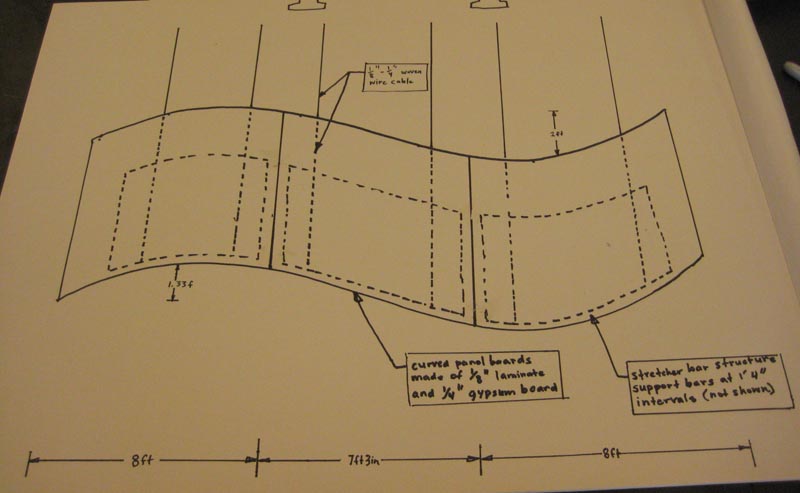 1/8" - 1/4" woven
wire cable
2ft
1.33f
curved panel boards
made of 1/8" laminate
and 1/4" gypsum board
stretcher bar structure
support bars at 1' 4"
intervals (not shown)
8ft
7ft3in
8ft